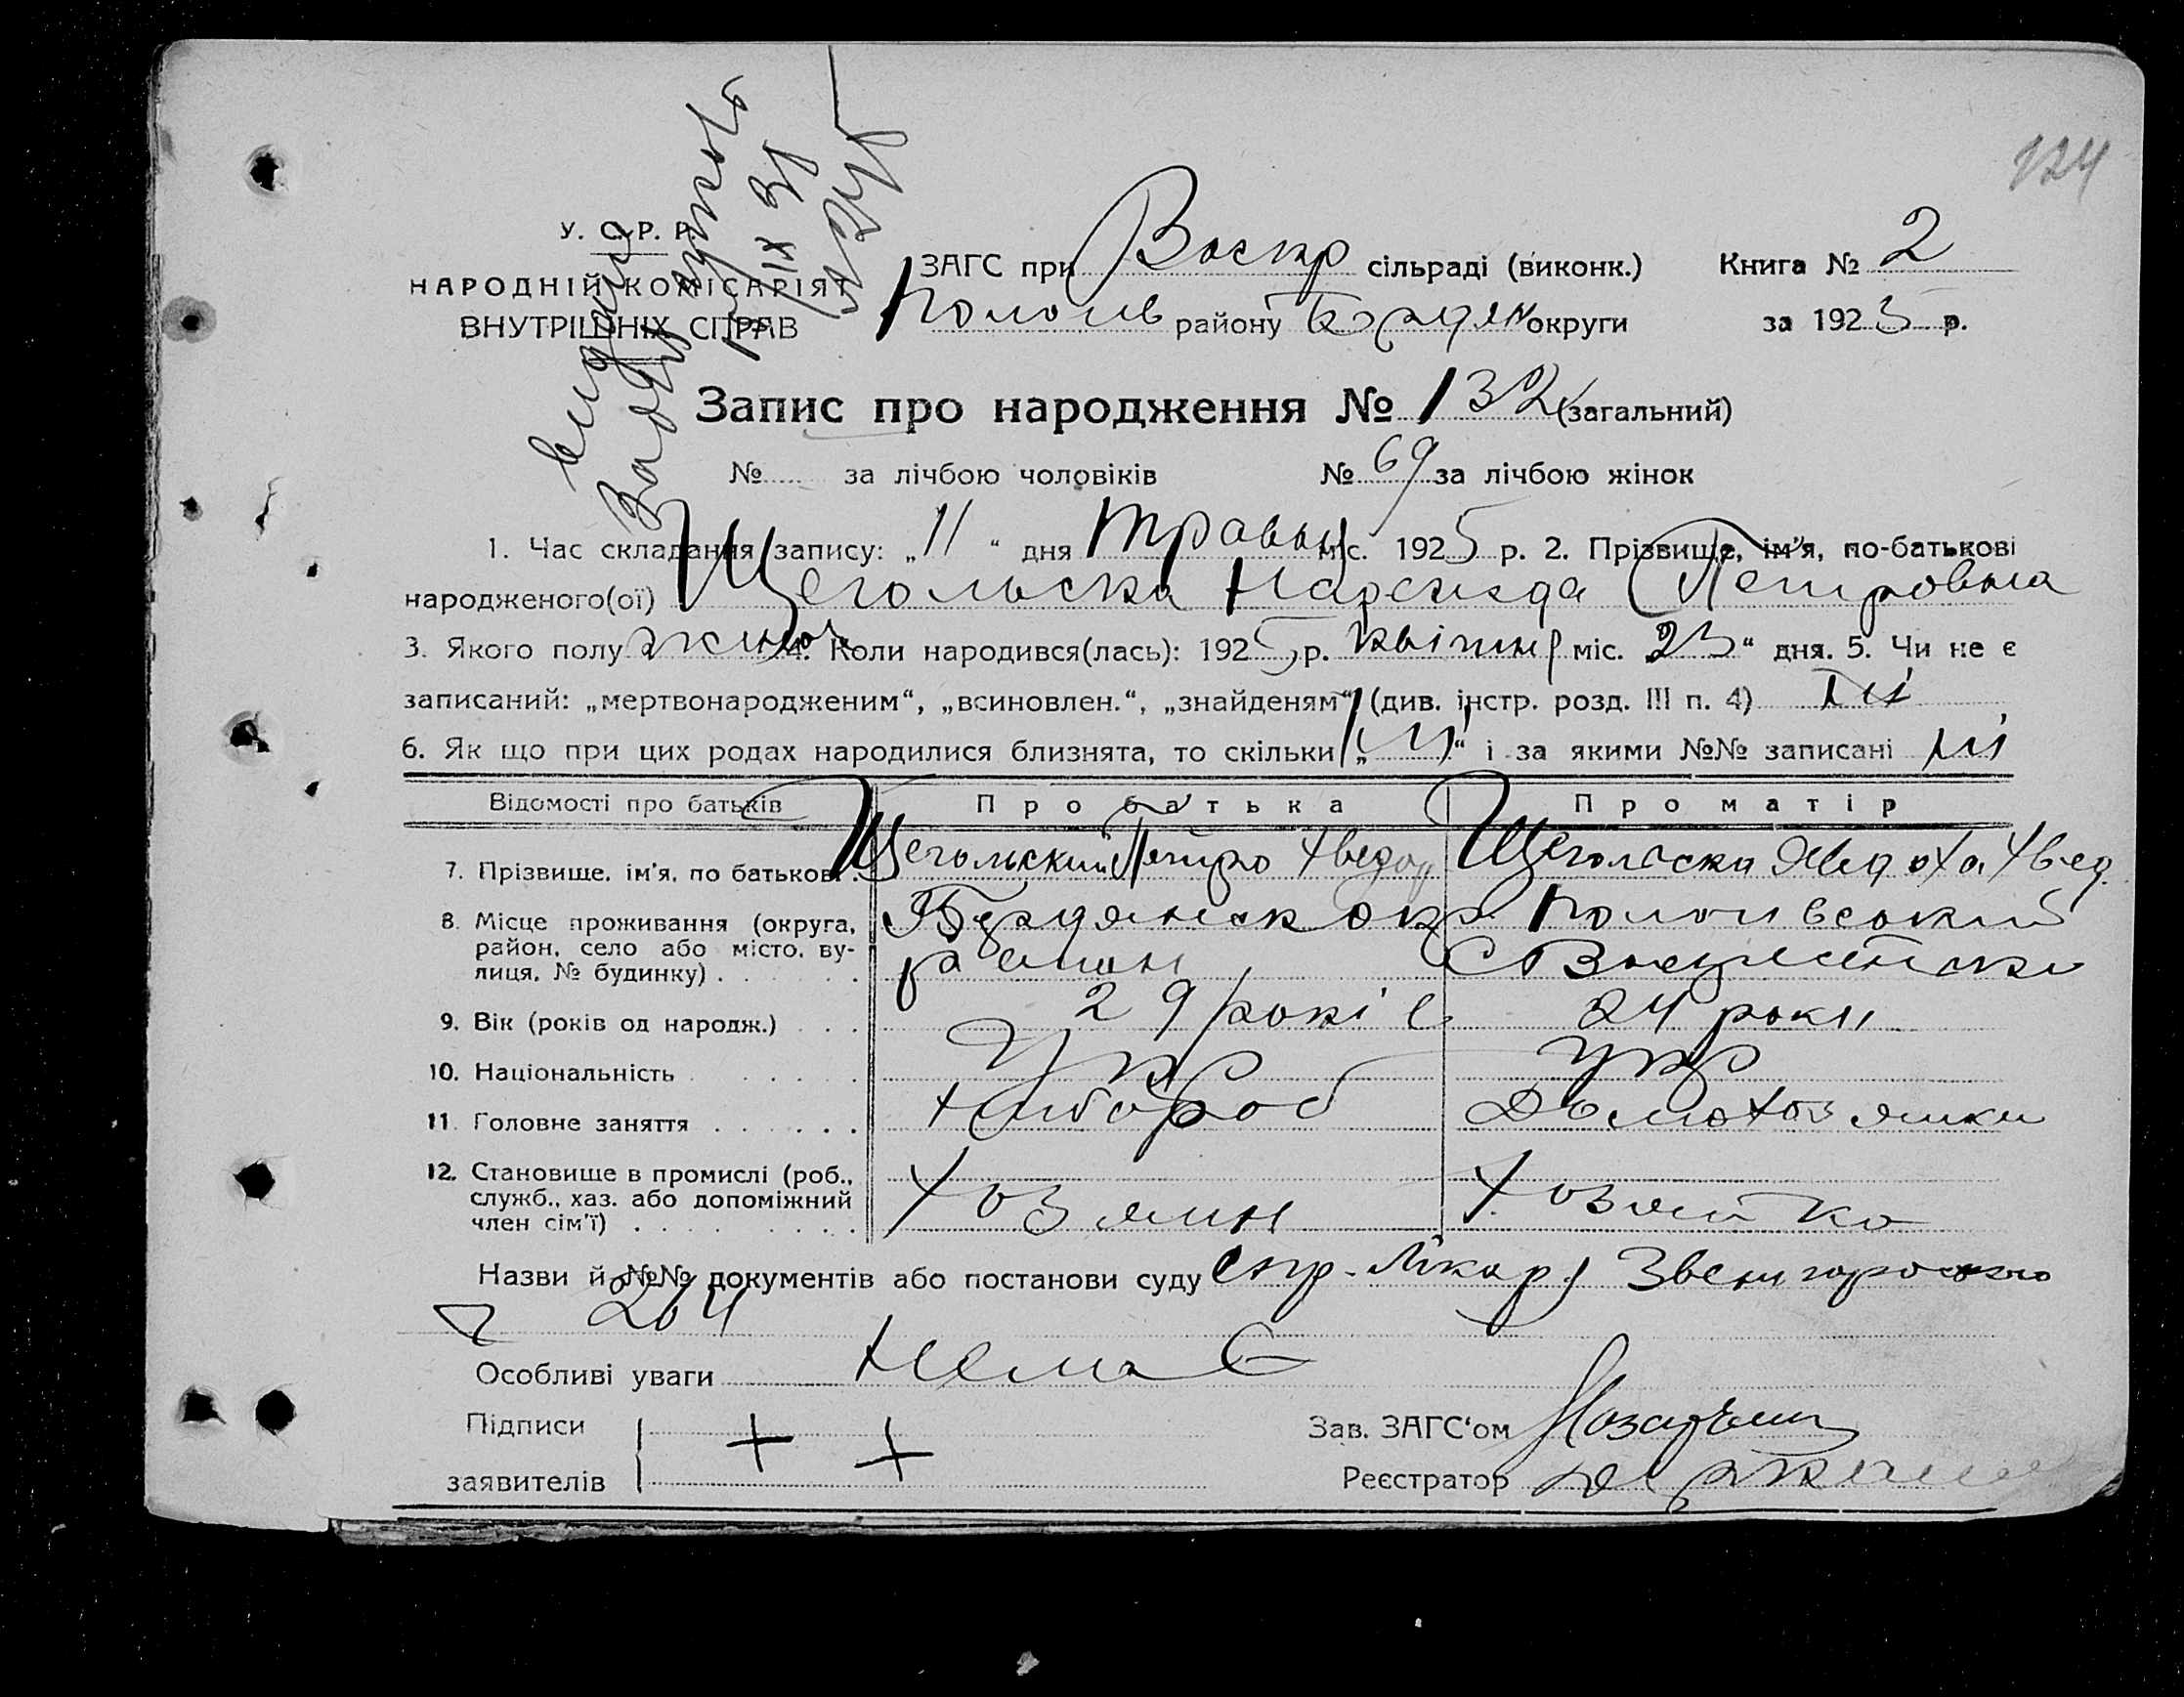 124
У. С. Р. Р.
НАРОДНІЙ КОМІСАРІЯТ
ВНУТРІШНІХ СПРАВ
ЗАГС при Воскр сільраді (виконк.) Книга № 2
Пологів району Бердян округи за 1925 р.
Запис про народження № 132 (загальний)
№ за лічбою чоловіків № 69 за лічбою жінок
1. Час складання запису: „11“ дня Травня міс. 1925 р. 2. Прізвище, ім'я, по-батькові
народженого(ої) Щегольска Надежда Петровна
3. Якого полу жіноч 4. Коли народився(лась): 1925 р. Квітня міс. „23“ дня. 5. Чи не є
записаний: „мертвонародженим“, „всиновлен.“, „знайденям“ (див. інстр. розд. III п. 4) Ні
6. Як що при цих родах народилися близнята, то скільки „ні“ і за якими №№ записані ні
Відомості про батьків Про батька Про матір
7. Прізвище, ім'я, по батькові . Щегольский Петро Хведор Щегольска Хвед.
8. Місце проживання (округа, Бердянск окр. Пологівський
район, село або місто, ву- район, с Воскресенка
лиця, № будинку) . . .
9. Вік (років од народж.) . . . 29 років 24 роки
10. Національність . . . . . Укр Укр
11. Головне заняття . . . . . Хлібороб Домохозяйка
12. Становище в промислі (роб.,
служб., хаз. або допоміжний Хозяин Хозяйка
член сім'ї) . . . . . . .
Назви й №№ документів або постанови суду спр. Лікаря Звенигородского
204
Особливі уваги Немає
Підписи + + Зав. ЗАГС'ом
заявителів Реєстратор